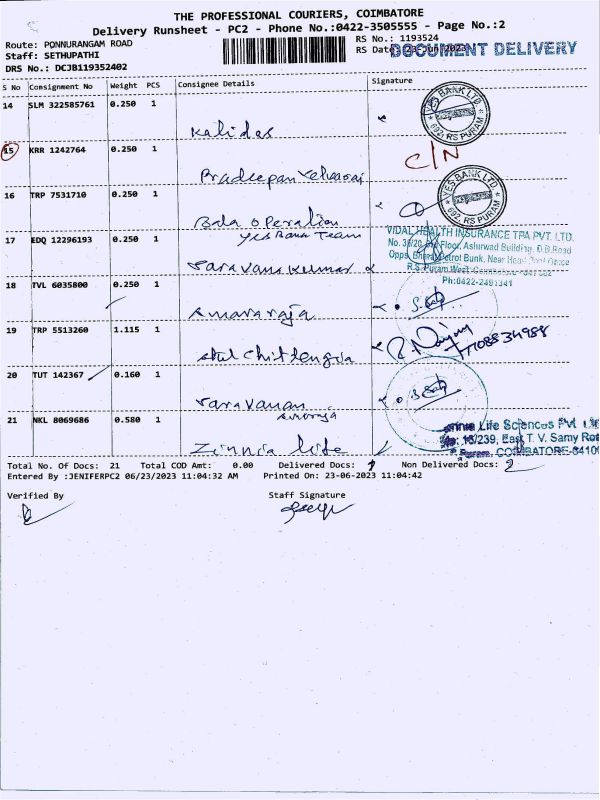 THE PROFESSIONAL COURIERS, COIMBATORE
Delivery Runsheet - PC2 - Phone No.:0422-3505555 - Page No.:2
Route: PONNURANGAM ROAD
RS No.: 1193524
Staff: SETHUPATHI
RS Date: 23-Jun-2023
DOCUMENT DELIVERY
DRS No.: DCJB119352402
S No Consignment No Weight PCS Consignee Details Signature
14 SLM 322585761 0.250 1
Kalidas
YES BANK LTD.
692, RS PURAM
15 KRR 1242764 0.250 1
C/N
Pradeepan
16 TRP 7531710 0.250 1
YES BANK LTD.
692, RS PURAM
Bala Operation
Yes Bank Team
17 EDQ 12296193 0.250 1
VIDAL HEALTH INSURANCE TPA PVT. LTD.
Floor, Ashirwad Building, D.B.Road
Opps. Bharat Petrol Bunk, Near Head Post Office
R.S. Puram West, Coimbatore
Ph:0422-2491341
Saravana Kumar
18 TVL 6035800 0.250 1
Amararaja
19 TRP 5513260 1.115 1
20 TUT 142367 0.160 1
Saravanan
21 NKL 8069686 0.580 1
Zinnia life
Life Sciences Pvt Ltd
16/239, East T. V. Samy Ro
Puram, COIMBATORE-64100
Total No. Of Docs: 21 Total COD Amt: 0.00 Delivered Docs: Non Delivered Docs: 2
Entered By :JENIFERPC2 06/23/2023 11:04:32 AM Printed On: 23-06-2023 11:04:42
Verified By Staff Signature